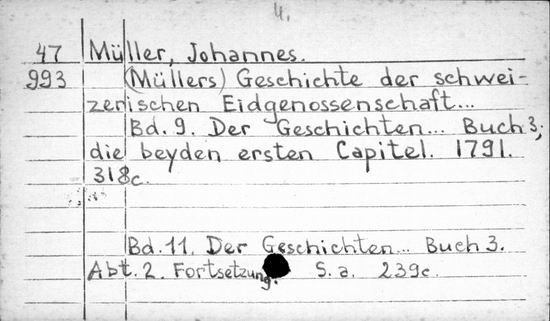 4.
47 Müller, Johannes.
993 (Müllers) Geschichte der schwei-
zerischen Eidgenossenschaft...
Bd. 9. Der Geschichten... Buch 3,
die beyden ersten Capitel. 1791.
318c.
Bd. 11. Der Geschichten... Buch 3.
Abt. 2. Fortsetzung. S. a. 239c.